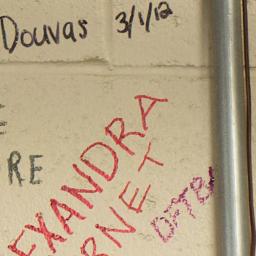 Douvas 3/1/12
RE
EXANDRA
RNET